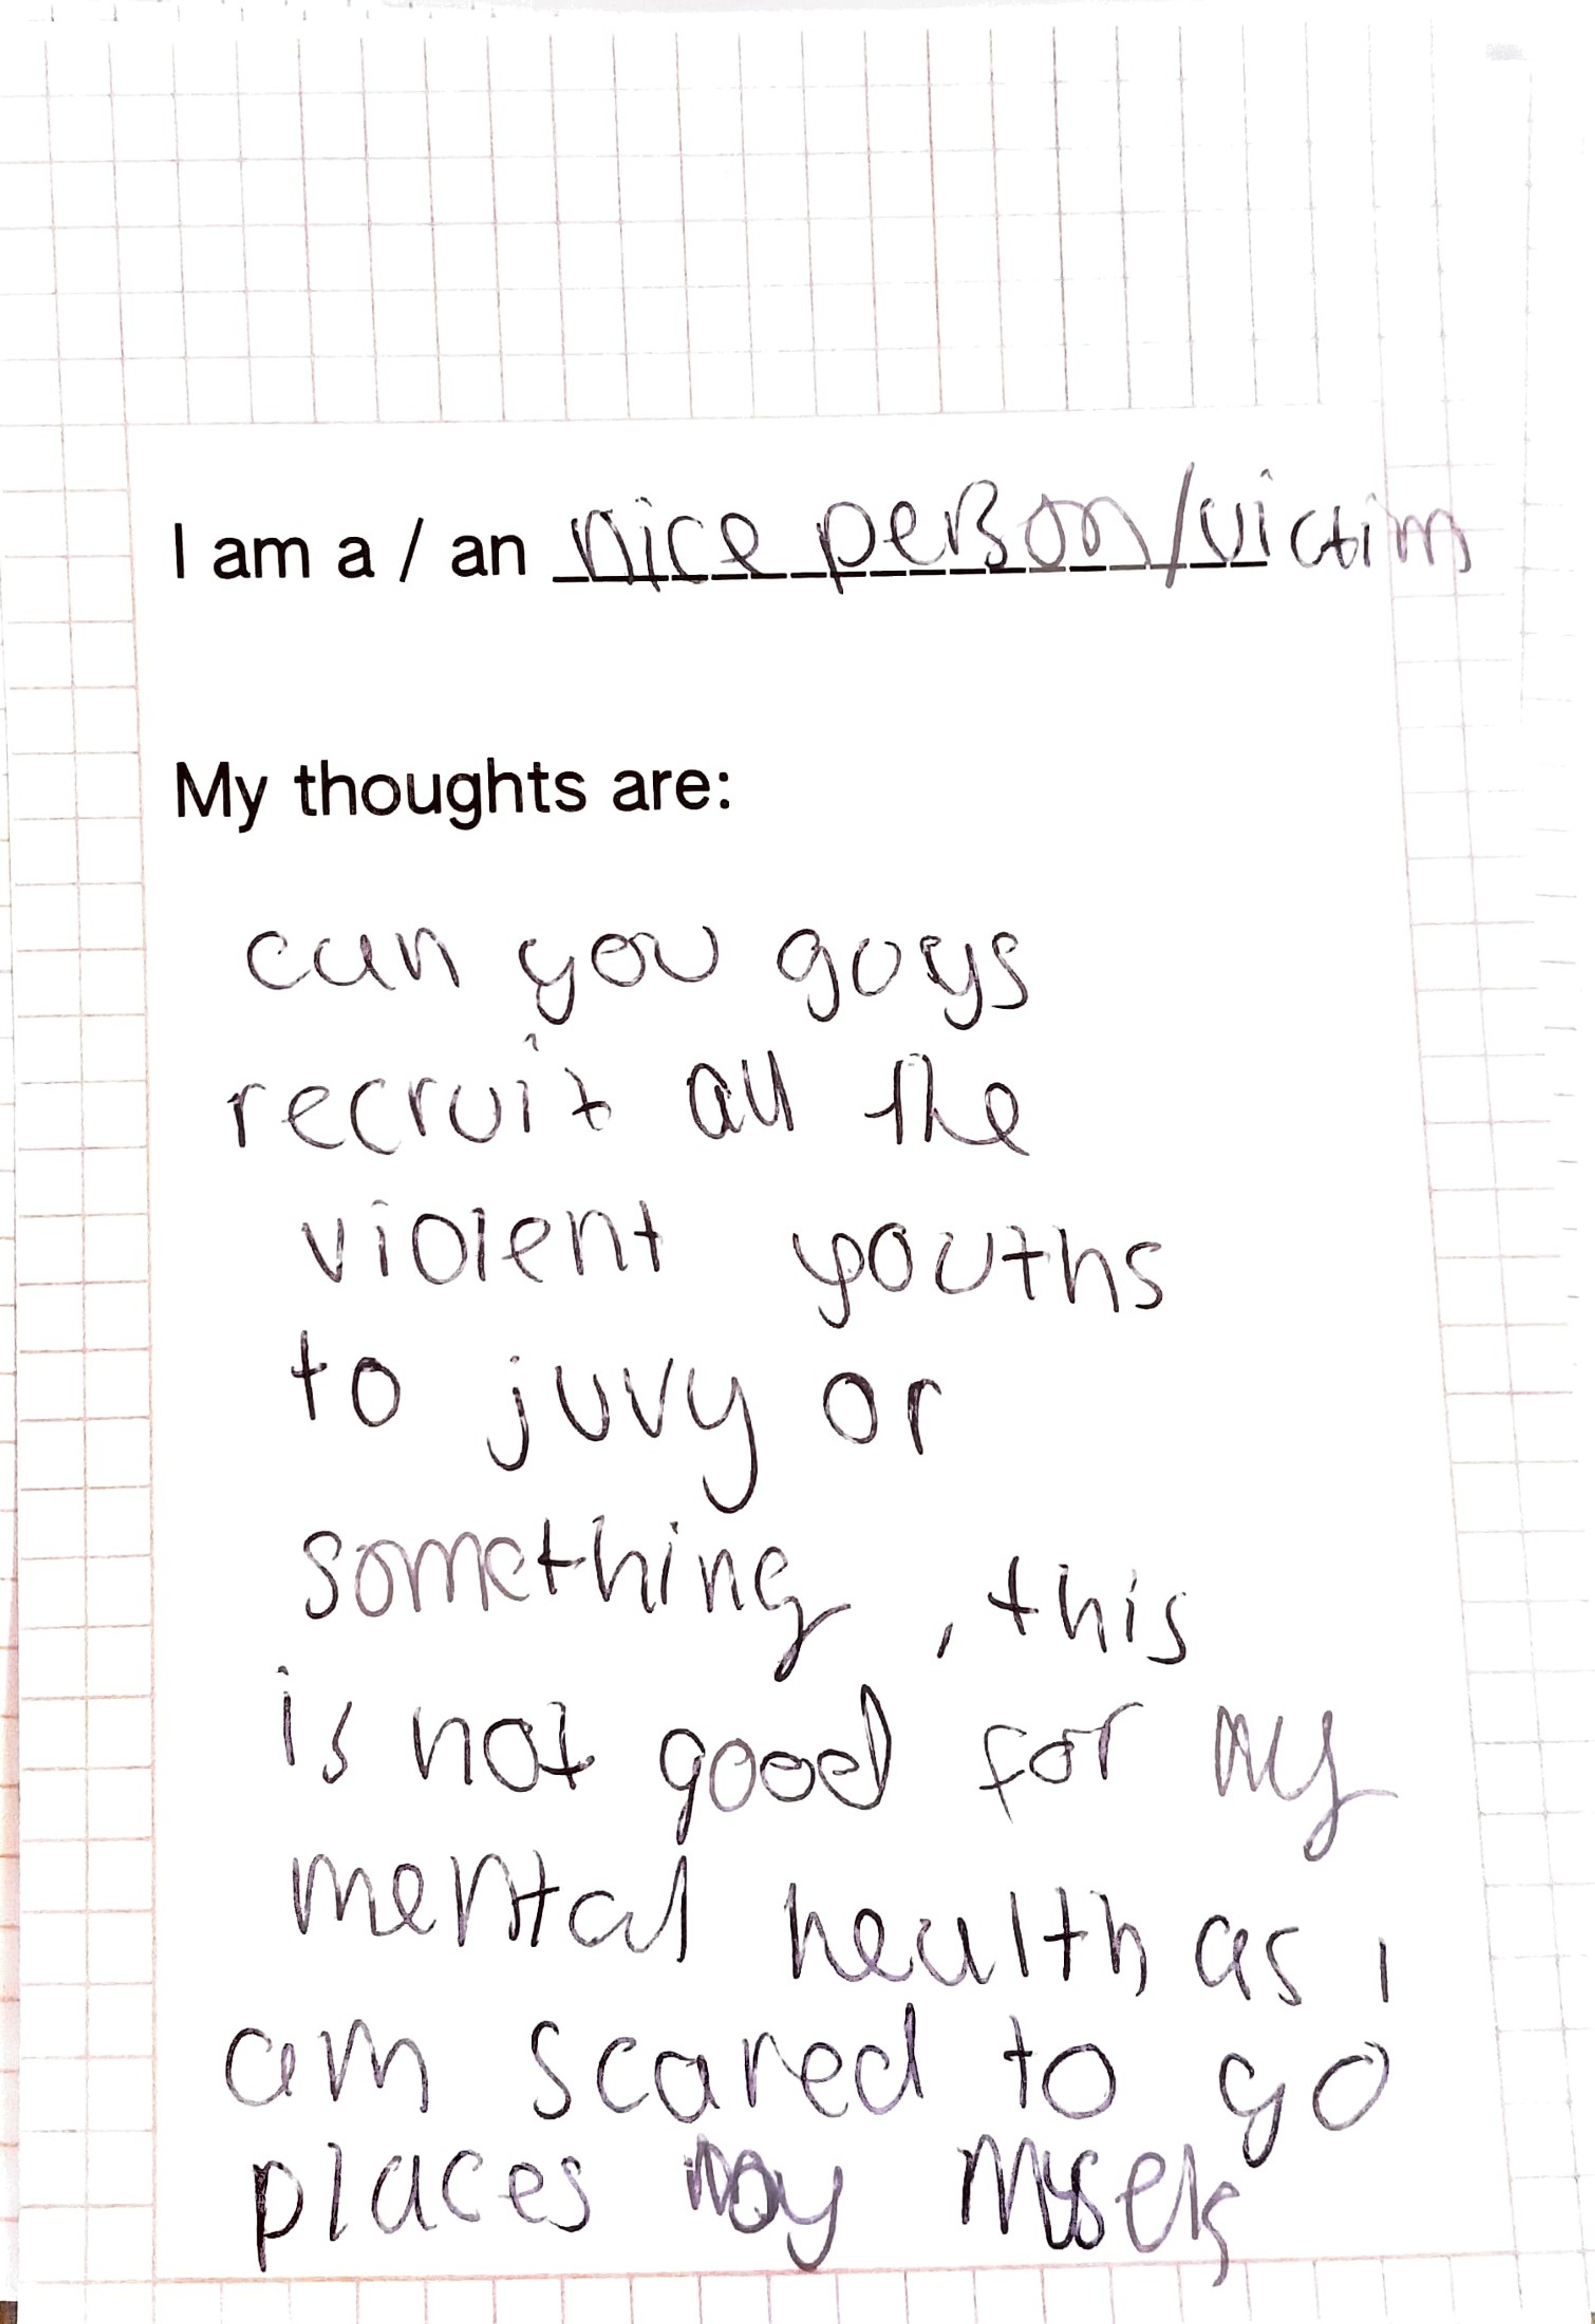 I am a / an nice person/victim
My thoughts are:
can you guys
recruit all the
violent youths
to juvy or
something, this
is not good for my
mental health as i
am scared to go
places by myself